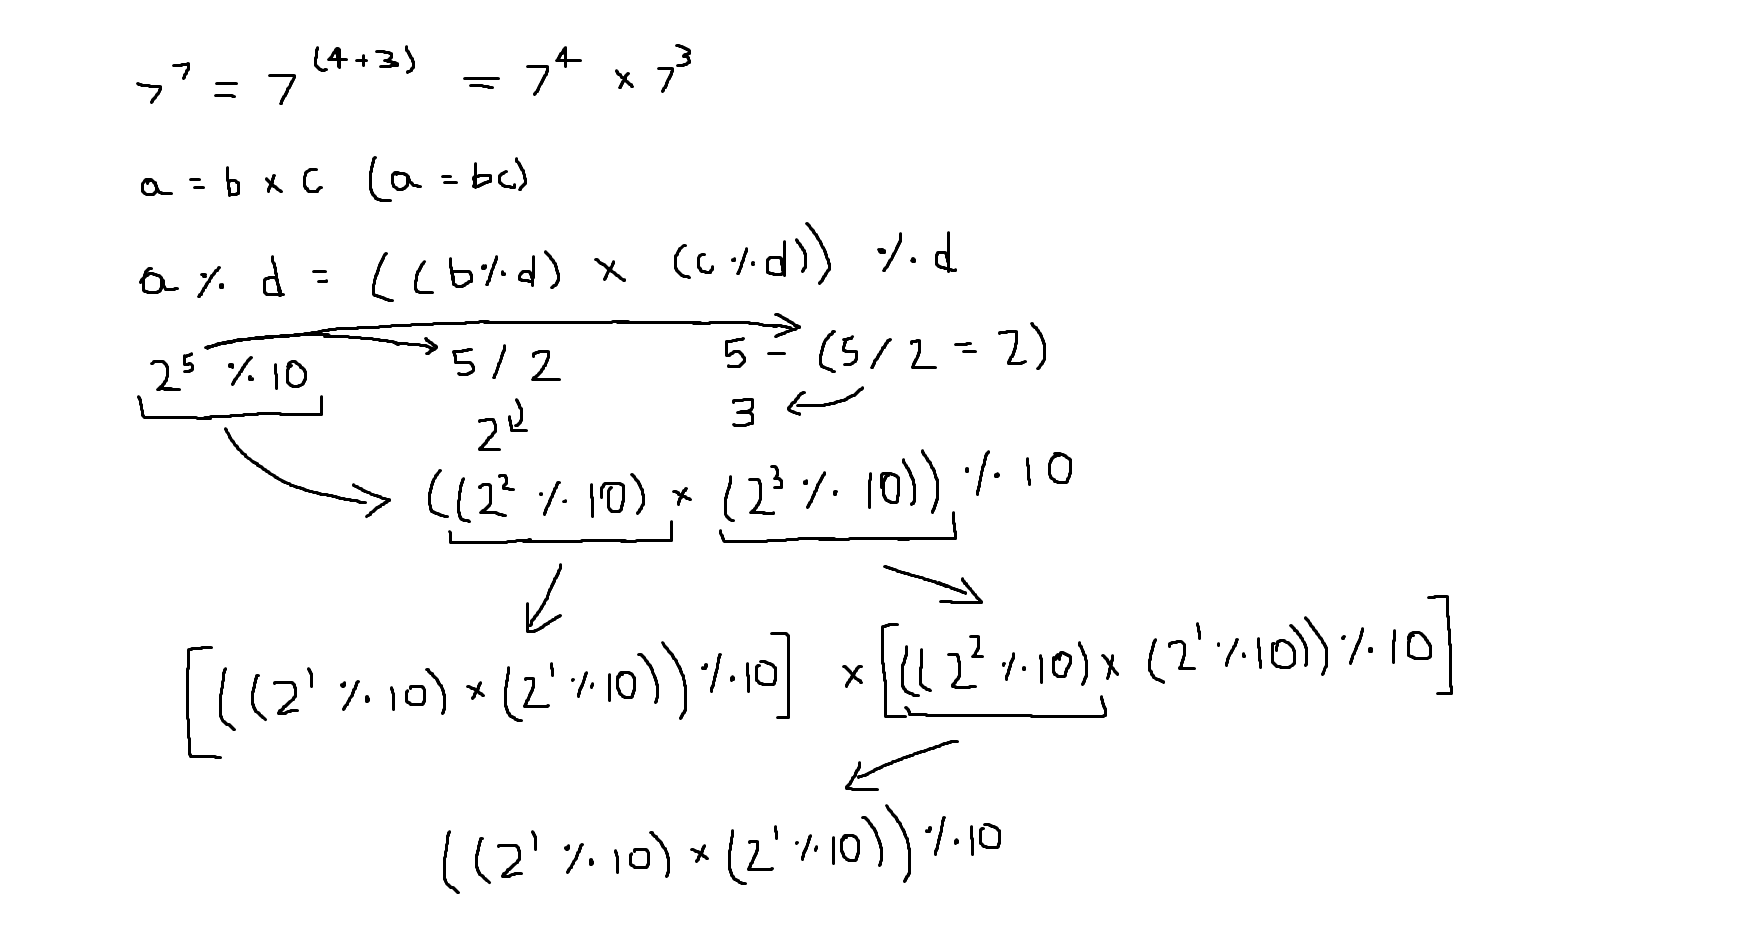 7⁷ = 7⁽⁴⁺³⁾ = 7⁴ × 7³
a = b × c (a = bc)
a % d = ((b % d) × (c % d)) % d
2⁵ % 10 5 / 2 5 - (5 / 2 = 2)
2 3
((2² % 10) × (2³ % 10)) % 10
[((2¹ % 10) × (2¹ % 10)) % 10] × [((2² % 10) × (2¹ % 10)) % 10]
((2¹ % 10) × (2¹ % 10)) % 10